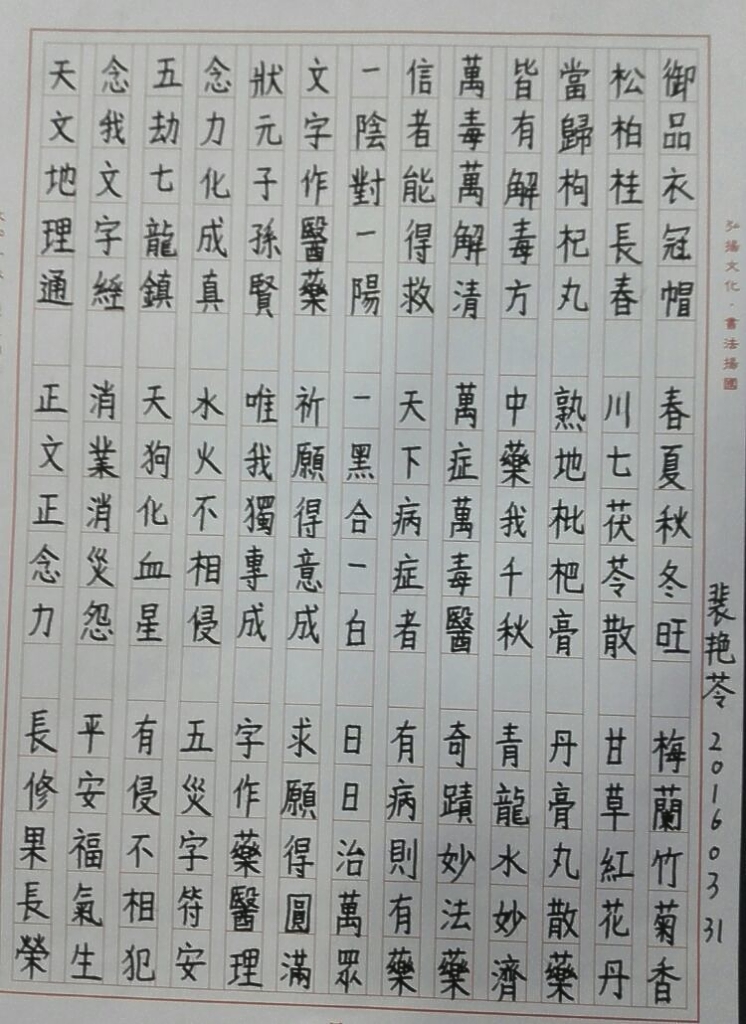 弘揚文化・書法揚國
裴艳苓 20160331
御品衣冠帽 春夏秋冬旺 梅蘭竹菊香
松柏桂長春 川七茯苓散 甘草紅花丹
當歸枸杞丸 熟地枇杷膏 丹膏丸散藥
皆有解毒方 中藥我千秋 青龍水妙濟
萬毒萬解清 萬症萬毒醫 奇蹟妙法藥
信者能得救 天下病症者 有病則有藥
一陰對一陽 一黑合一白 日日治萬眾
文字作醫藥 祈願得意成 求願得圓滿
狀元子孫賢 唯我獨專成 字作藥醫理
念力化成真 水火不相侵 五災字符安
五劫七龍鎮 天狗化血星 有侵不相犯
念我文字經 消業消災怨 平安福氣生
天文地理通 正文正念力 長修果長榮